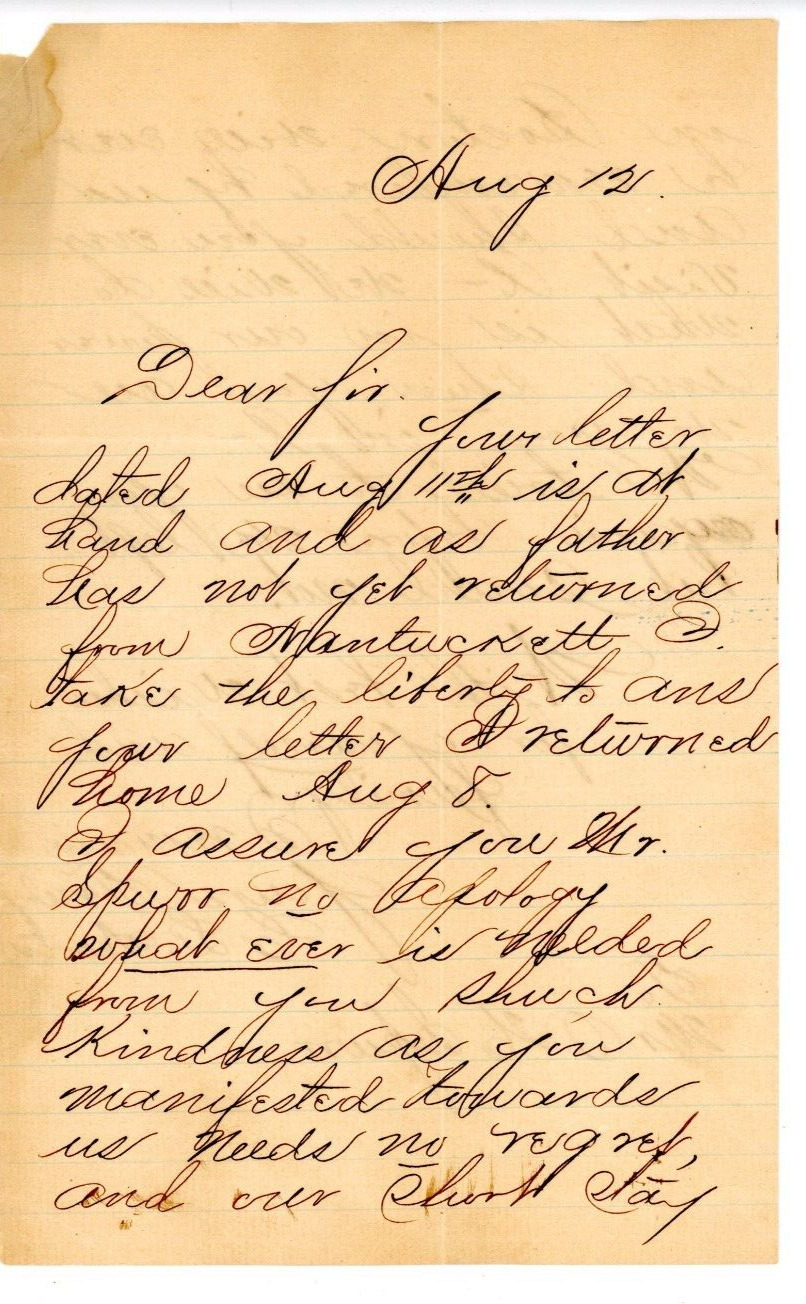 Aug 12.
Dear Sir.
Your letter
dated Aug 11th is at
hand and as father
has not yet returned
from Nantuckett I.
take the liberty to ans
your letter I returned
home Aug 8.
I assure you Mr.
Spurr no apology
what ever is needed
from you shuch
kindness as you
manifested towards
us needs no regret,
and our short stay